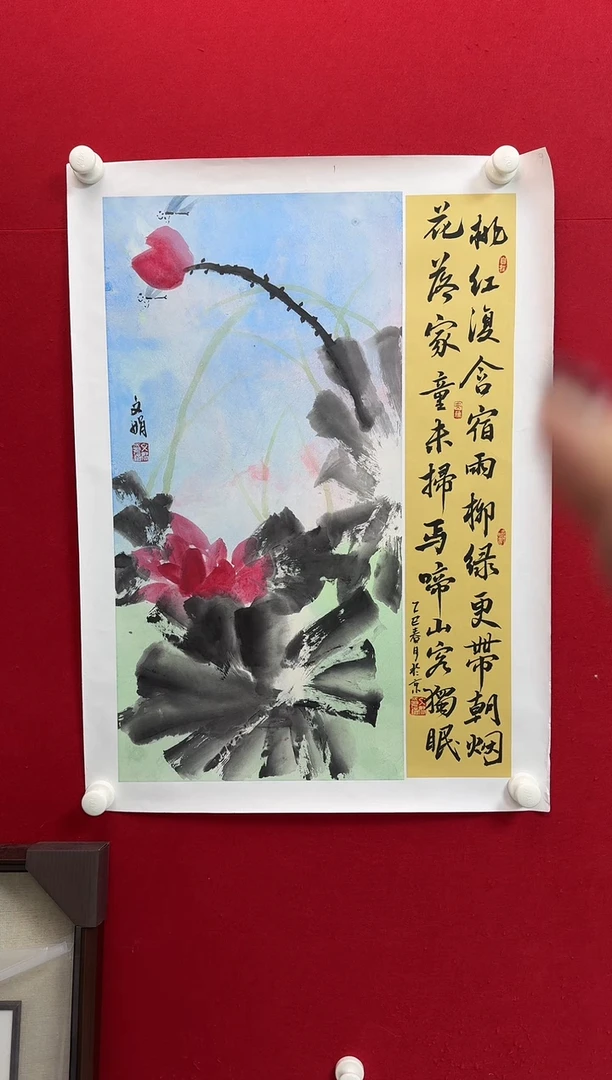 桃红復含宿雨柳绿更帶朝烟
花落家童未掃鸟啼山客獨眠
乙巳春月於京
文娟